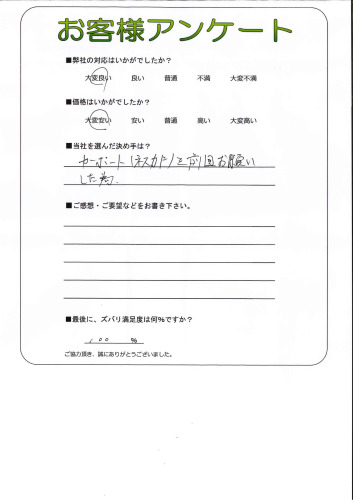 お客様アンケート
■弊社の対応はいかがでしたか?
大変良い 良い 普通 不満 大変不満
■価格はいかがでしたか?
大変安い 安い 普通 高い 大変高い
■当社を選んだ決め手は?
カーポート(ネスカF)を前回お願い
した為.
■ご感想・ご要望などをお書き下さい。
■最後に、ズバリ満足度は何%ですか?
100 %
ご協力頂き、誠にありがとうございました。